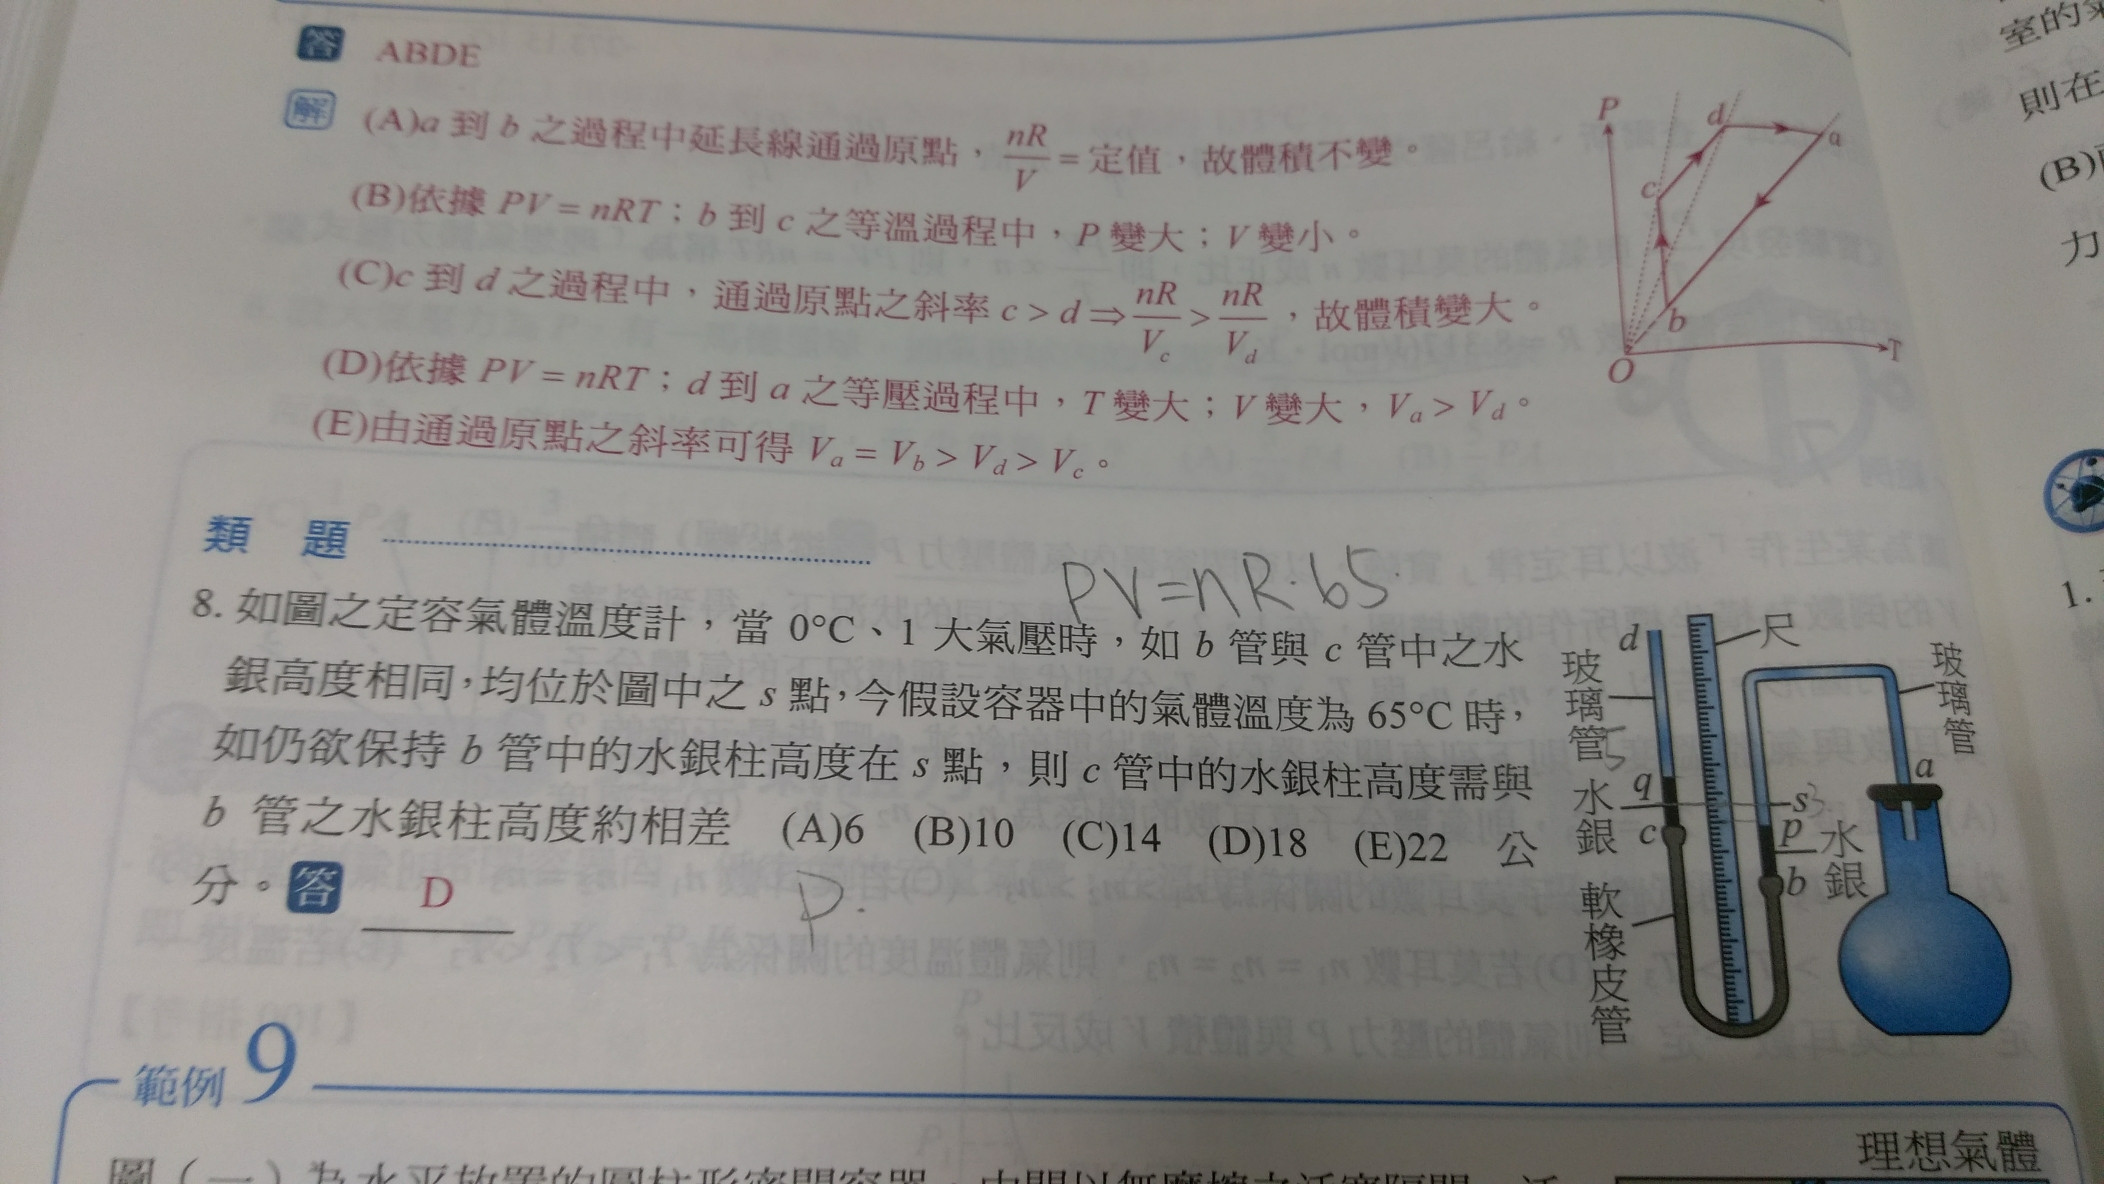 室的
則在
(B)
力
1.
答 ABDE
解 (A)a 到 b 之過程中延長線通過原點，nR/V = 定值，故體積不變。
(B)依據 PV = nRT；b 到 c 之等溫過程中，P 變大；V 變小。
(C)c 到 d 之過程中，通過原點之斜率 c > d ⇒ nR/Vc > nR/Vd，故體積變大。
(D)依據 PV = nRT；d 到 a 之等壓過程中，T 變大；V 變大，Va > Vd。
(E)由通過原點之斜率可得 Va = Vb > Vd > Vc。
P
d
a
c
b
O
T
類 題
PV=nR·65
8. 如圖之定容氣體溫度計，當 0°C、1 大氣壓時，如 b 管與 c 管中之水
銀高度相同，均位於圖中之 s 點，今假設容器中的氣體溫度為 65°C 時，
如仍欲保持 b 管中的水銀柱高度在 s 點，則 c 管中的水銀柱高度需與
b 管之水銀柱高度約相差 (A)6 (B)10 (C)14 (D)18 (E)22 公
分。答 D
P.
d
尺
玻璃管
玻璃管
q
水銀
c
s
p
水銀
b
a
軟橡皮管
範例 9
理想氣體
圖（一）為水平放置的圓柱形密閉容器，中間以無摩擦之活塞隔開，活